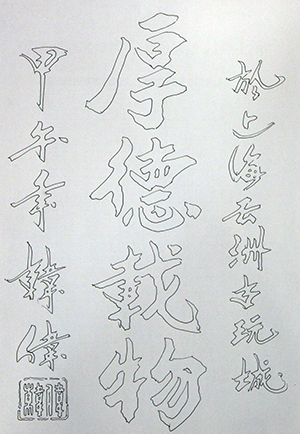 於上海云洲古玩城
厚德載物
甲午年韓偉